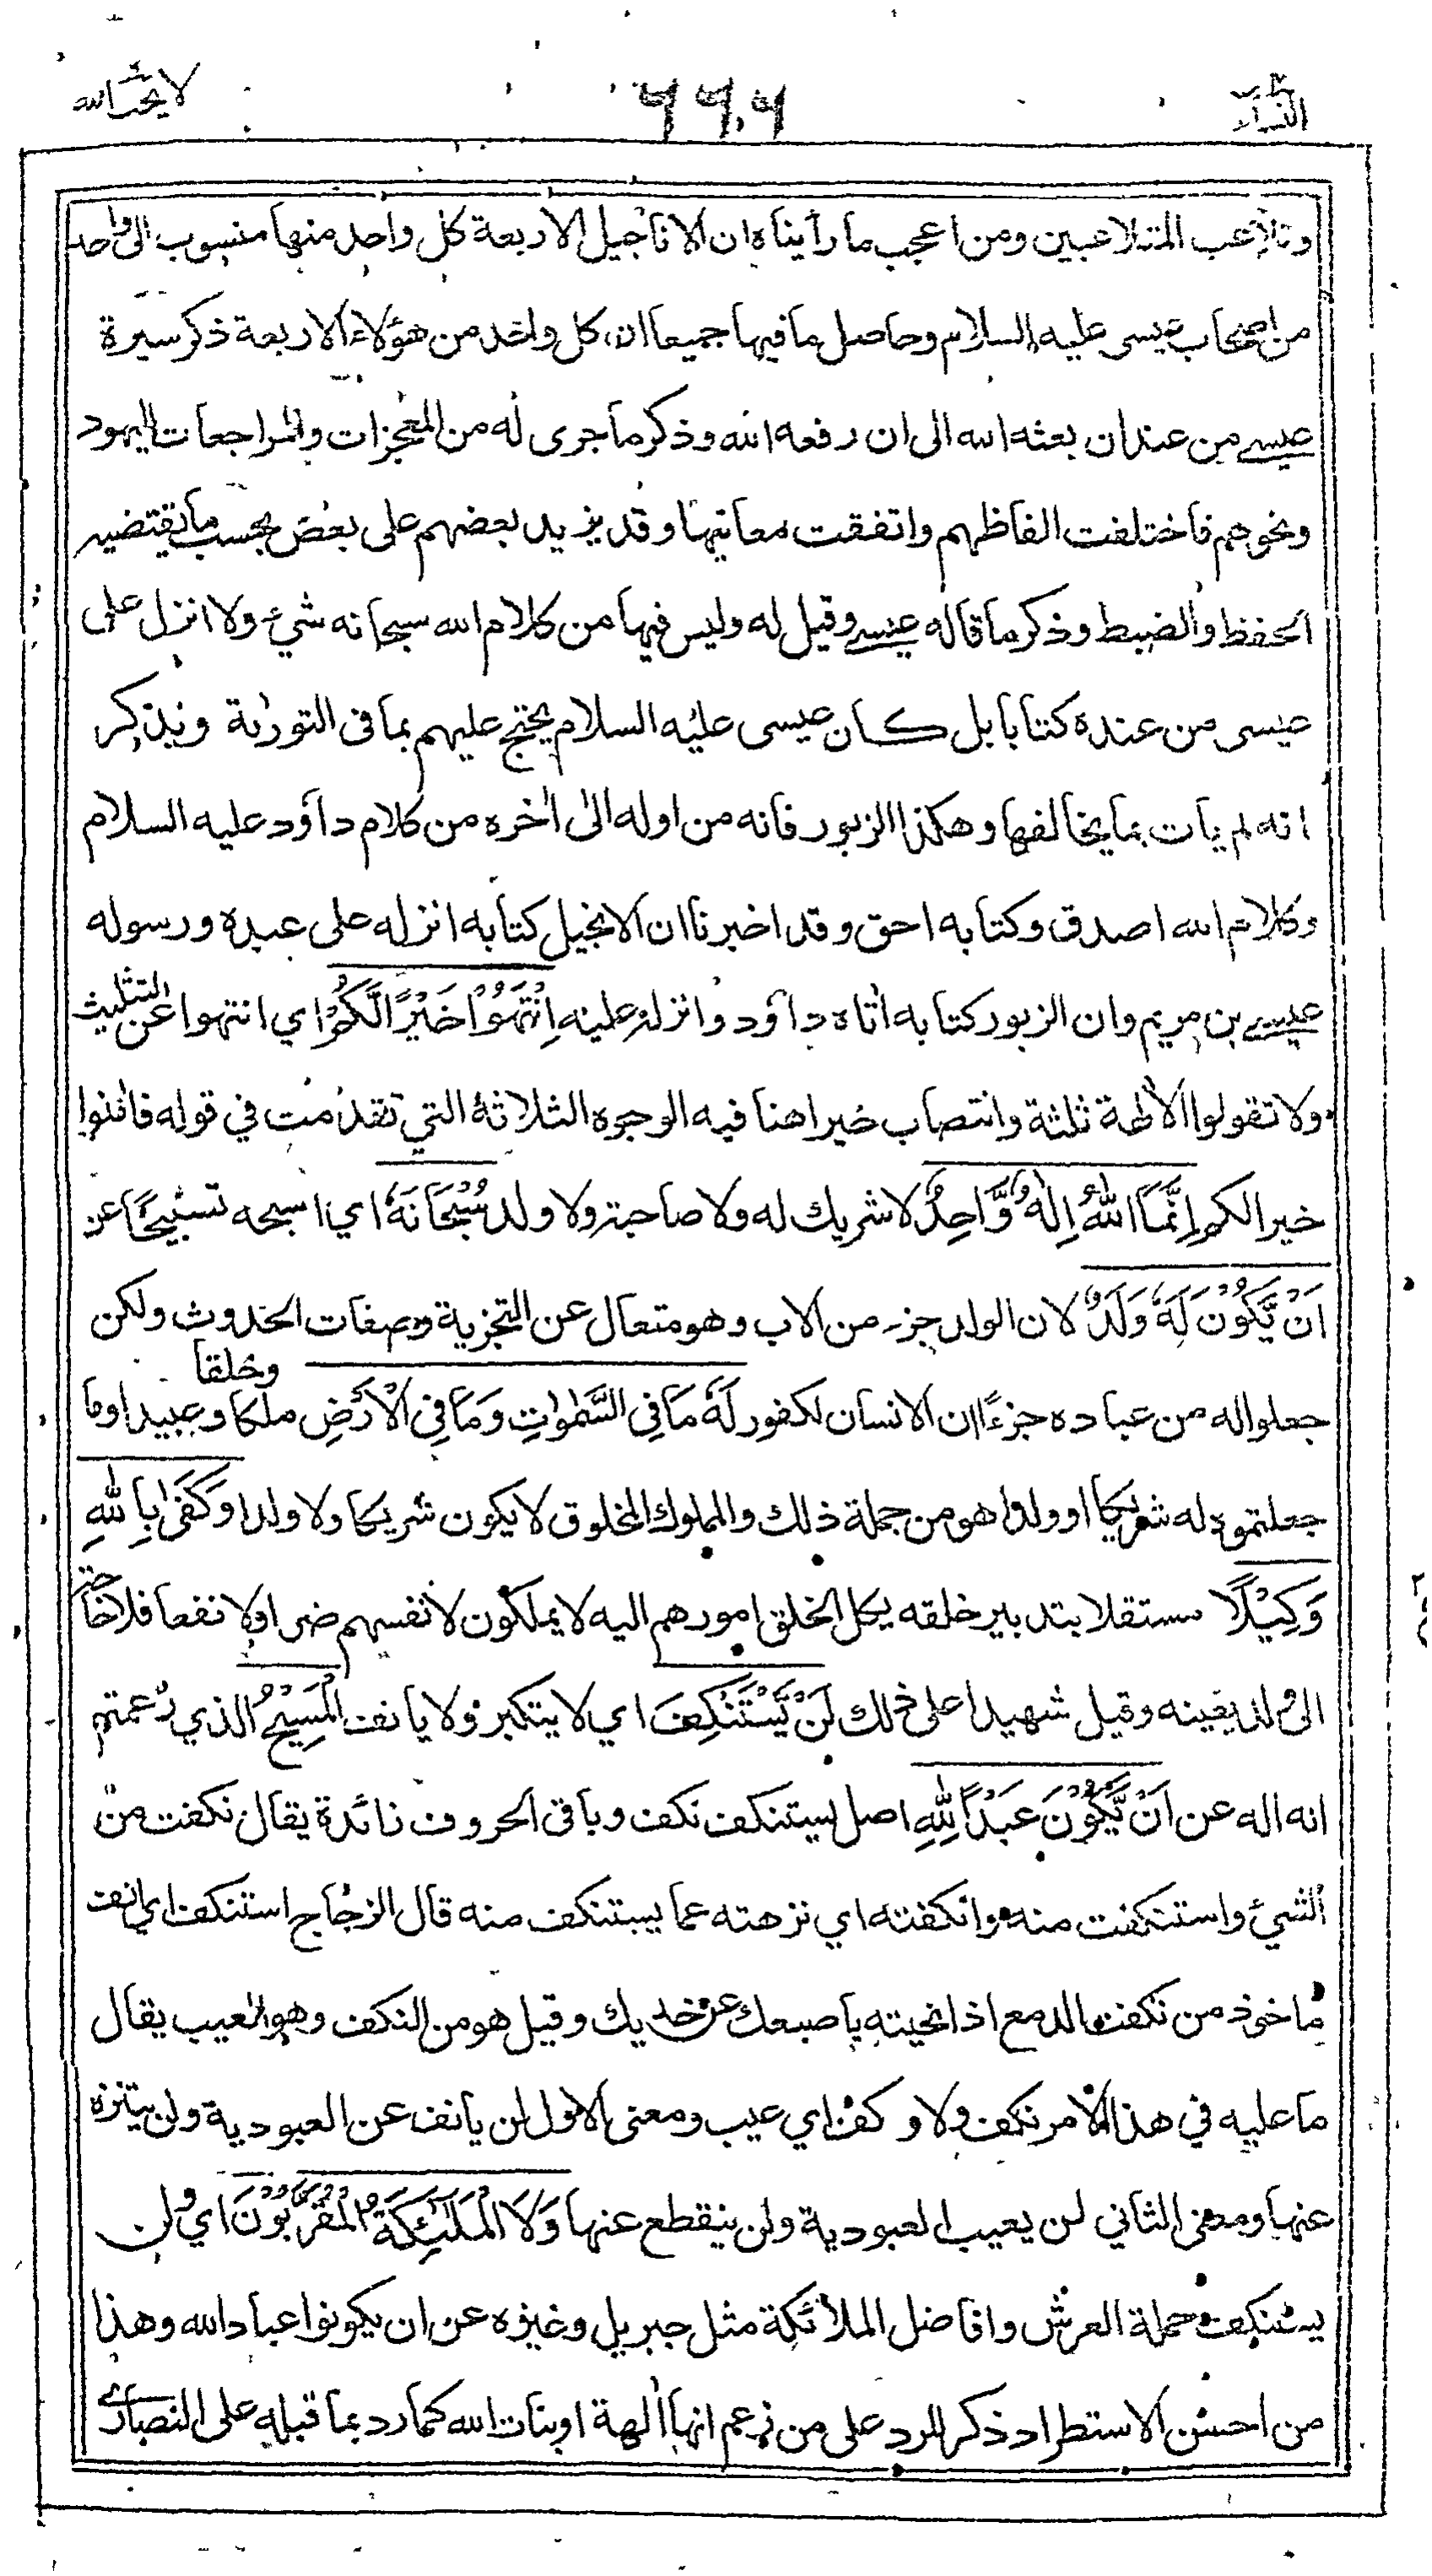 النساء ٦٦٠٦ لا يحب الله
وتلاعب المتلاعبين ومن اعجب ما رأيناه ان الاناجيل الاربعة كل واحد منها منسوب الى واحد
من اصحاب عيسى عليه السلام وحاصل ما فيها جميعا ان كل واحد من هؤلاء الاربعة ذكر سيرة
عيسى من عند ان بعثه الله الى ان رفعه الله وذكر ما جرى له من المعجزات والمراجعات لليهود
ونحوهم فاختلفت الفاظهم واتفقت معانيها وقد يزيد بعضهم على بعض بحسب ما يقتضيه
الحفظ والضبط وذكر ما قاله عيسى وقيل له وليس فيها من كلام الله سبحانه شئ ولا انزل على
عيسى من عنده كتابا بل كان عيسى عليه السلام يحتج عليهم بما فى التورٰىة ويذكر
انه لم يأت بما يخالفها وهكذا الزبور فانه من اوله الى اٰخره من كلام داؤد عليه السلام
وكلام الله اصدق وكتابه احق وقد اخبرنا ان الانجيل كتابه انزله على عبده ورسوله
عيسى بن مريم وان الزبور كتابه اٰتاه داؤد وانزله عليه اِنْتَهُوْا خَيْرًا لَّكُمْ اي انتهوا عن التثليث
ولا تقولوا الاٰلهة ثلثة وانتصاب خيرا هنا فيه الوجوه الثلاثة التي تقدمت في قوله فاٰمنوا
خيرا لكم اِنَّمَا اللّٰهُ اِلٰهٌ وَّاحِدٌ لا شريك له ولا صاحبة ولا ولد سُبْحَانَهٗ اي اسبحه تسبيحًا عن
اَنْ يَّكُوْنَ لَهٗ وَلَدٌ لان الولد جزء من الاب وهو متعال عن التجزية وصفات الحدوث ولكن
جعلوا له من عباده جزءًا ان الانسان لكفور لَهٗ مَا فِي السَّمٰوٰتِ وَمَا فِي الْاَرْضِ ملكا وخلقا وعبيدا وما
جعلتموه له شريكا او ولدا هو من جملة ذلك والمملوك المخلوق لا يكون شريكا ولا ولدا وَكَفٰى بِاللّٰهِ
وَكِيْلًا مستقلا بتدبير خلقه يكل الخلق امورهم اليه لا يملكون لانفسهم ضرا ولا نفعا فلا حاجة
الى ولد يعينه وقيل شهيدا على ذلك لَنْ يَّسْتَنْكِفَ اي لا يتكبر ولا يأنف الْمَسِيْحُ الذي زعمتم
انه اله عن اَنْ يَّكُوْنَ عَبْدًا لِلّٰهِ اصل يستنكف نكف وباقى الحروف زائدة يقال نكفت من
الشئ واستنكفت منه وانكفته اي نزهته عما يستنكف منه قال الزجاج استنكف اي انف
مأخوذ من نكفت الدمع اذا نحيته بأصبعك عن خديك وقيل هو من النكف وهو العيب يقال
ما عليه في هذا الامر نكف ولا وكف اي عيب ومعنى الاول لن يأنف عن العبودية ولن يتنزه
عنها ومعنى الثاني لن يعيب العبودية ولن ينقطع عنها وَلَا الْمَلٰٓئِكَةُ الْمُقَرَّبُوْنَ اي ولن
يستنكف حملة العرش وافاضل الملائكة مثل جبريل وغيره عن ان يكونوا عبادالله وهذا
من احسن الاستطراد ذكر للرد على من زعم انها اٰلهة او بنات الله كما رد بما قبله على النصارى